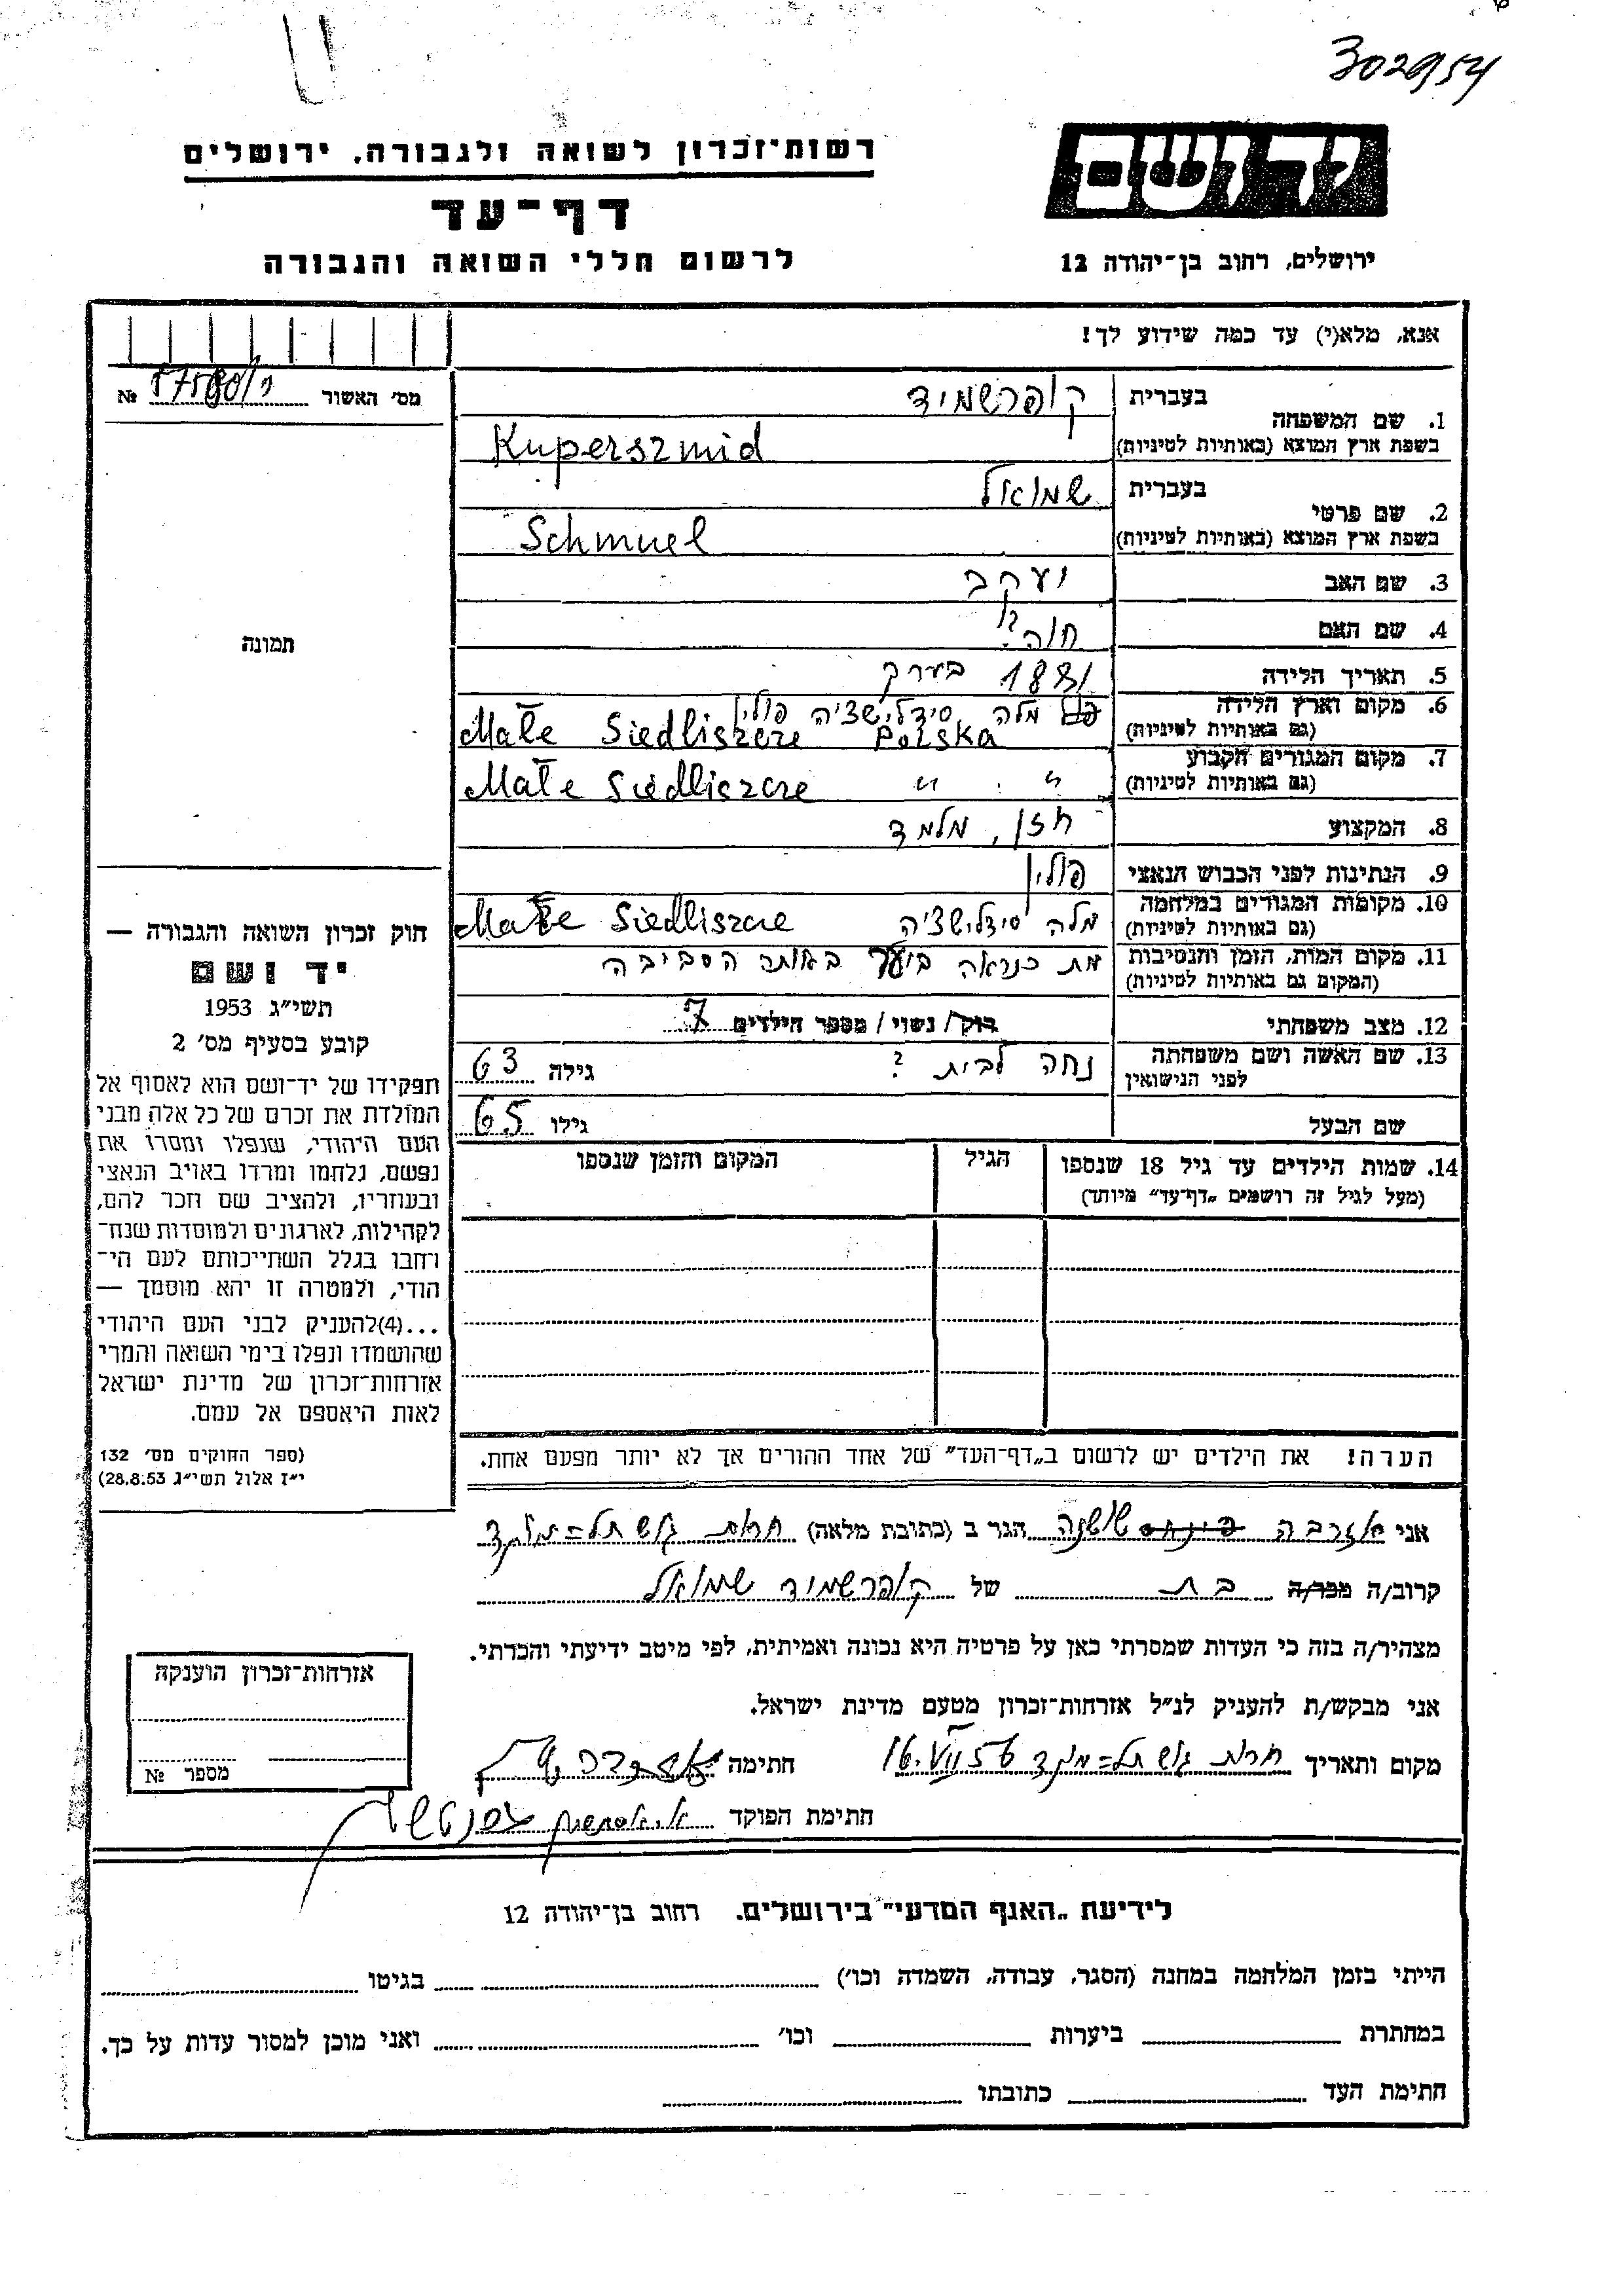 302954
רשות־זכרון לשואה ולגבורה, ירושלים
דף־עד
לרשום חללי השואה והגבורה
יד ושם
ירושלים, רחוב בן־יהודה 12
אנא, מלא(י) עד כמה שידוע לך!
מס׳ האשור № 
1. שם המשפחה
בעברית קופרשמיד
בשפת ארץ המוצא (באותיות לטיניות) Kuperszmid
2. שם פרטי
בעברית שמואל
בשפת ארץ המוצא (באותיות לטיניות) Schmuel
3. שם האב יעקב
4. שם האם חוה ?
5. תאריך הלידה 1881 בערך
6. מקום וארץ הלידה מלה סידלישציה פולין
(גם באותיות לטיניות) Małe Siedliszcze Polska
7. מקום המגורים הקבוע
(גם באותיות לטיניות) Małe Siedliszcze " "
8. המקצוע חזן, מלמד
9. הנתינות לפני הכבוש הנאצי פולין
10. מקומות המגורים במלחמה
(גם באותיות לטיניות) מלה סידלישציה Małe Siedliszcze
11. מקום המות, הזמן והנסיבות מת כנראה ביער באותה הסביבה
(המקום גם באותיות לטיניות)
12. מצב משפחתי רוק/ נשוי/ מספר הילדים 7
13. שם האשה ושם משפחתה נחה לבית ? גילה 63
לפני הנישואין
שם הבעל גילו 65
14. שמות הילדים עד גיל 18 שנספו הגיל המקום והזמן שנספו
(מעל לגיל זה רושמים „דף־עד״ מיוחד)
הערה! את הילדים יש לרשום ב„דף־העד״ של אחד ההורים אך לא יותר מפעם אחת.
תמונה
חוק זכרון השואה והגבורה —
יד ושם
תשי״ג 1953
קובע בסעיף מס׳ 2
תפקידו של יד־ושם הוא לאסוף אל
המולדת את זכרם של כל אלה מבני
העם היהודי, שנפלו ומסרו את
נפשם, נלחמו ומרדו באויב הנאצי
ובעוזריו, ולהציב שם וזכר להם,
לקהילות, לארגונים ולמוסדות שנח־
רבו בגלל השתייכותם לעם הי־
הודי, ולמטרה זו יהא מוסמך —
...(4)להעניק לבני העם היהודי
שהושמדו ונפלו בימי השואה והמרי
אזרחות־זכרון של מדינת ישראל
לאות היאספם אל עמם.
(ספר החוקים מס׳ 132
י״ז אלול תשי״ג 28.8.53)
אני שושנה הגר ב (כתובת מלאה)
קרוב/ה מכר/ה בת של קופרשמיד שמואל
מצהיר/ה בזה כי העדות שמסרתי כאן על פרטיה היא נכונה ואמיתית, לפי מיטב ידיעתי והכרתי.
אני מבקש/ת להעניק לנ״ל אזרחות־זכרון מטעם מדינת ישראל.
מקום ותאריך חתימה
חתימת הפוקד
אזרחות־זכרון הוענקה
מספר №
לידיעת „האגף המדעי״ בירושלים. רחוב בן־יהודה 12
הייתי בזמן המלחמה במחנה (הסגר, עבודה, השמדה וכו׳) בגיטו
במחתרת ביערות וכו׳ ואני מוכן למסור עדות על כך.
חתימת העד כתובתו